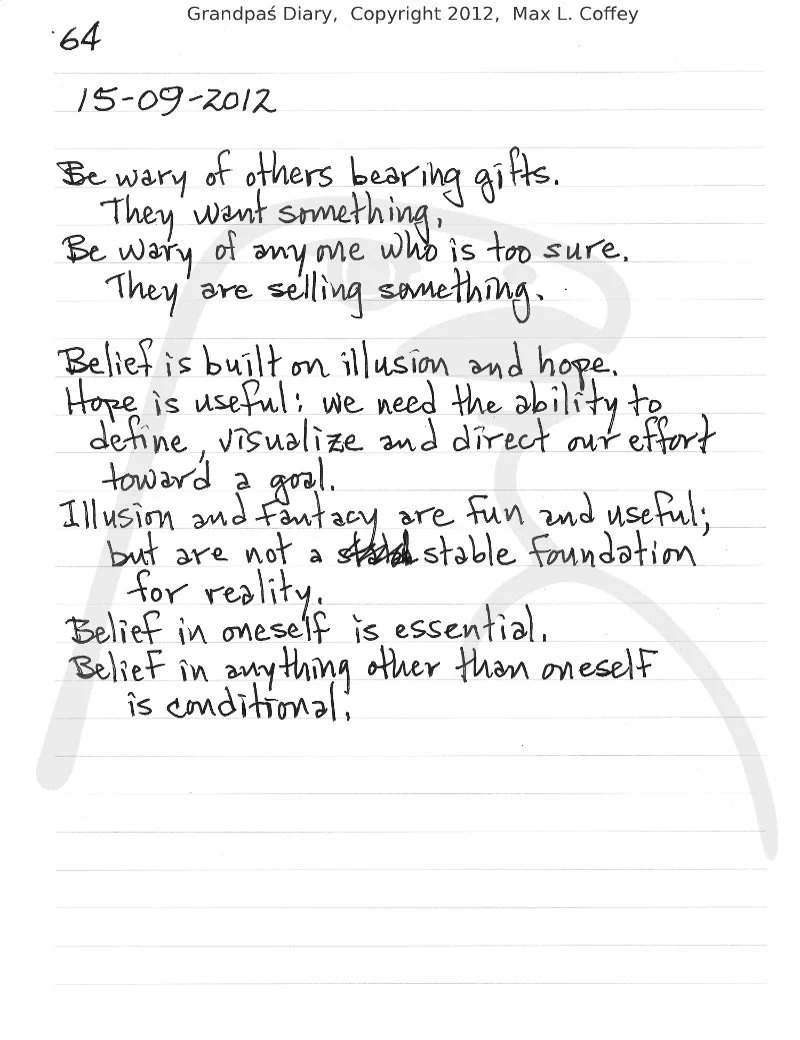 Grandpaś Diary, Copyright 2012, Max L. Coffey
64
15-09-2012
Be wary of others bearing gifts.
They want something.
Be wary of anyone who is too sure.
They are selling something.
Belief is built on illusion and hope.
Hope is useful: we need the ability to
define, visualize and direct our effort
toward a goal.
Illusion and fantacy are fun and useful;
but are not a stable foundation
for reality.
Belief in oneself is essential.
Belief in anything other than oneself
is conditional.